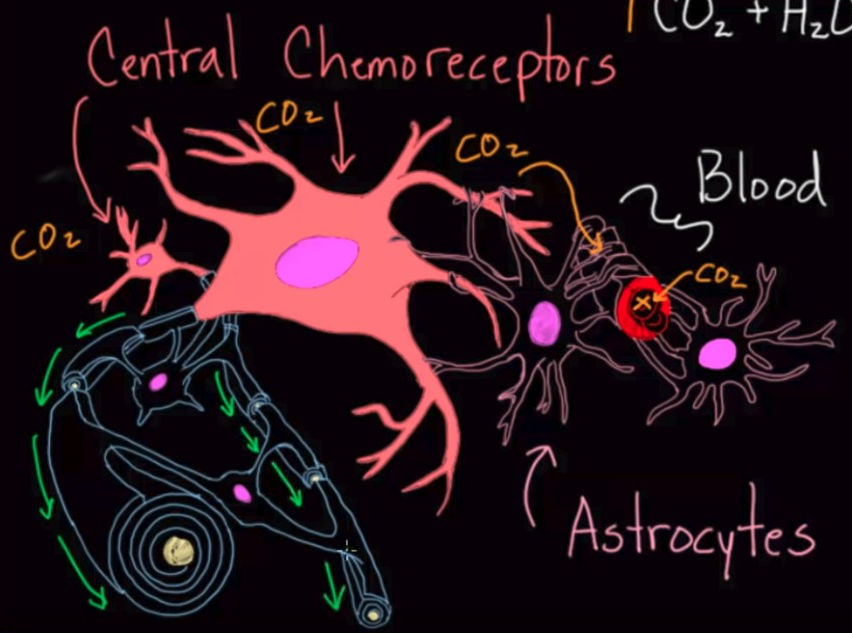 CO₂ + H₂O
Central Chemoreceptors
CO₂
CO₂
Blood
CO₂
CO₂
Astrocytes